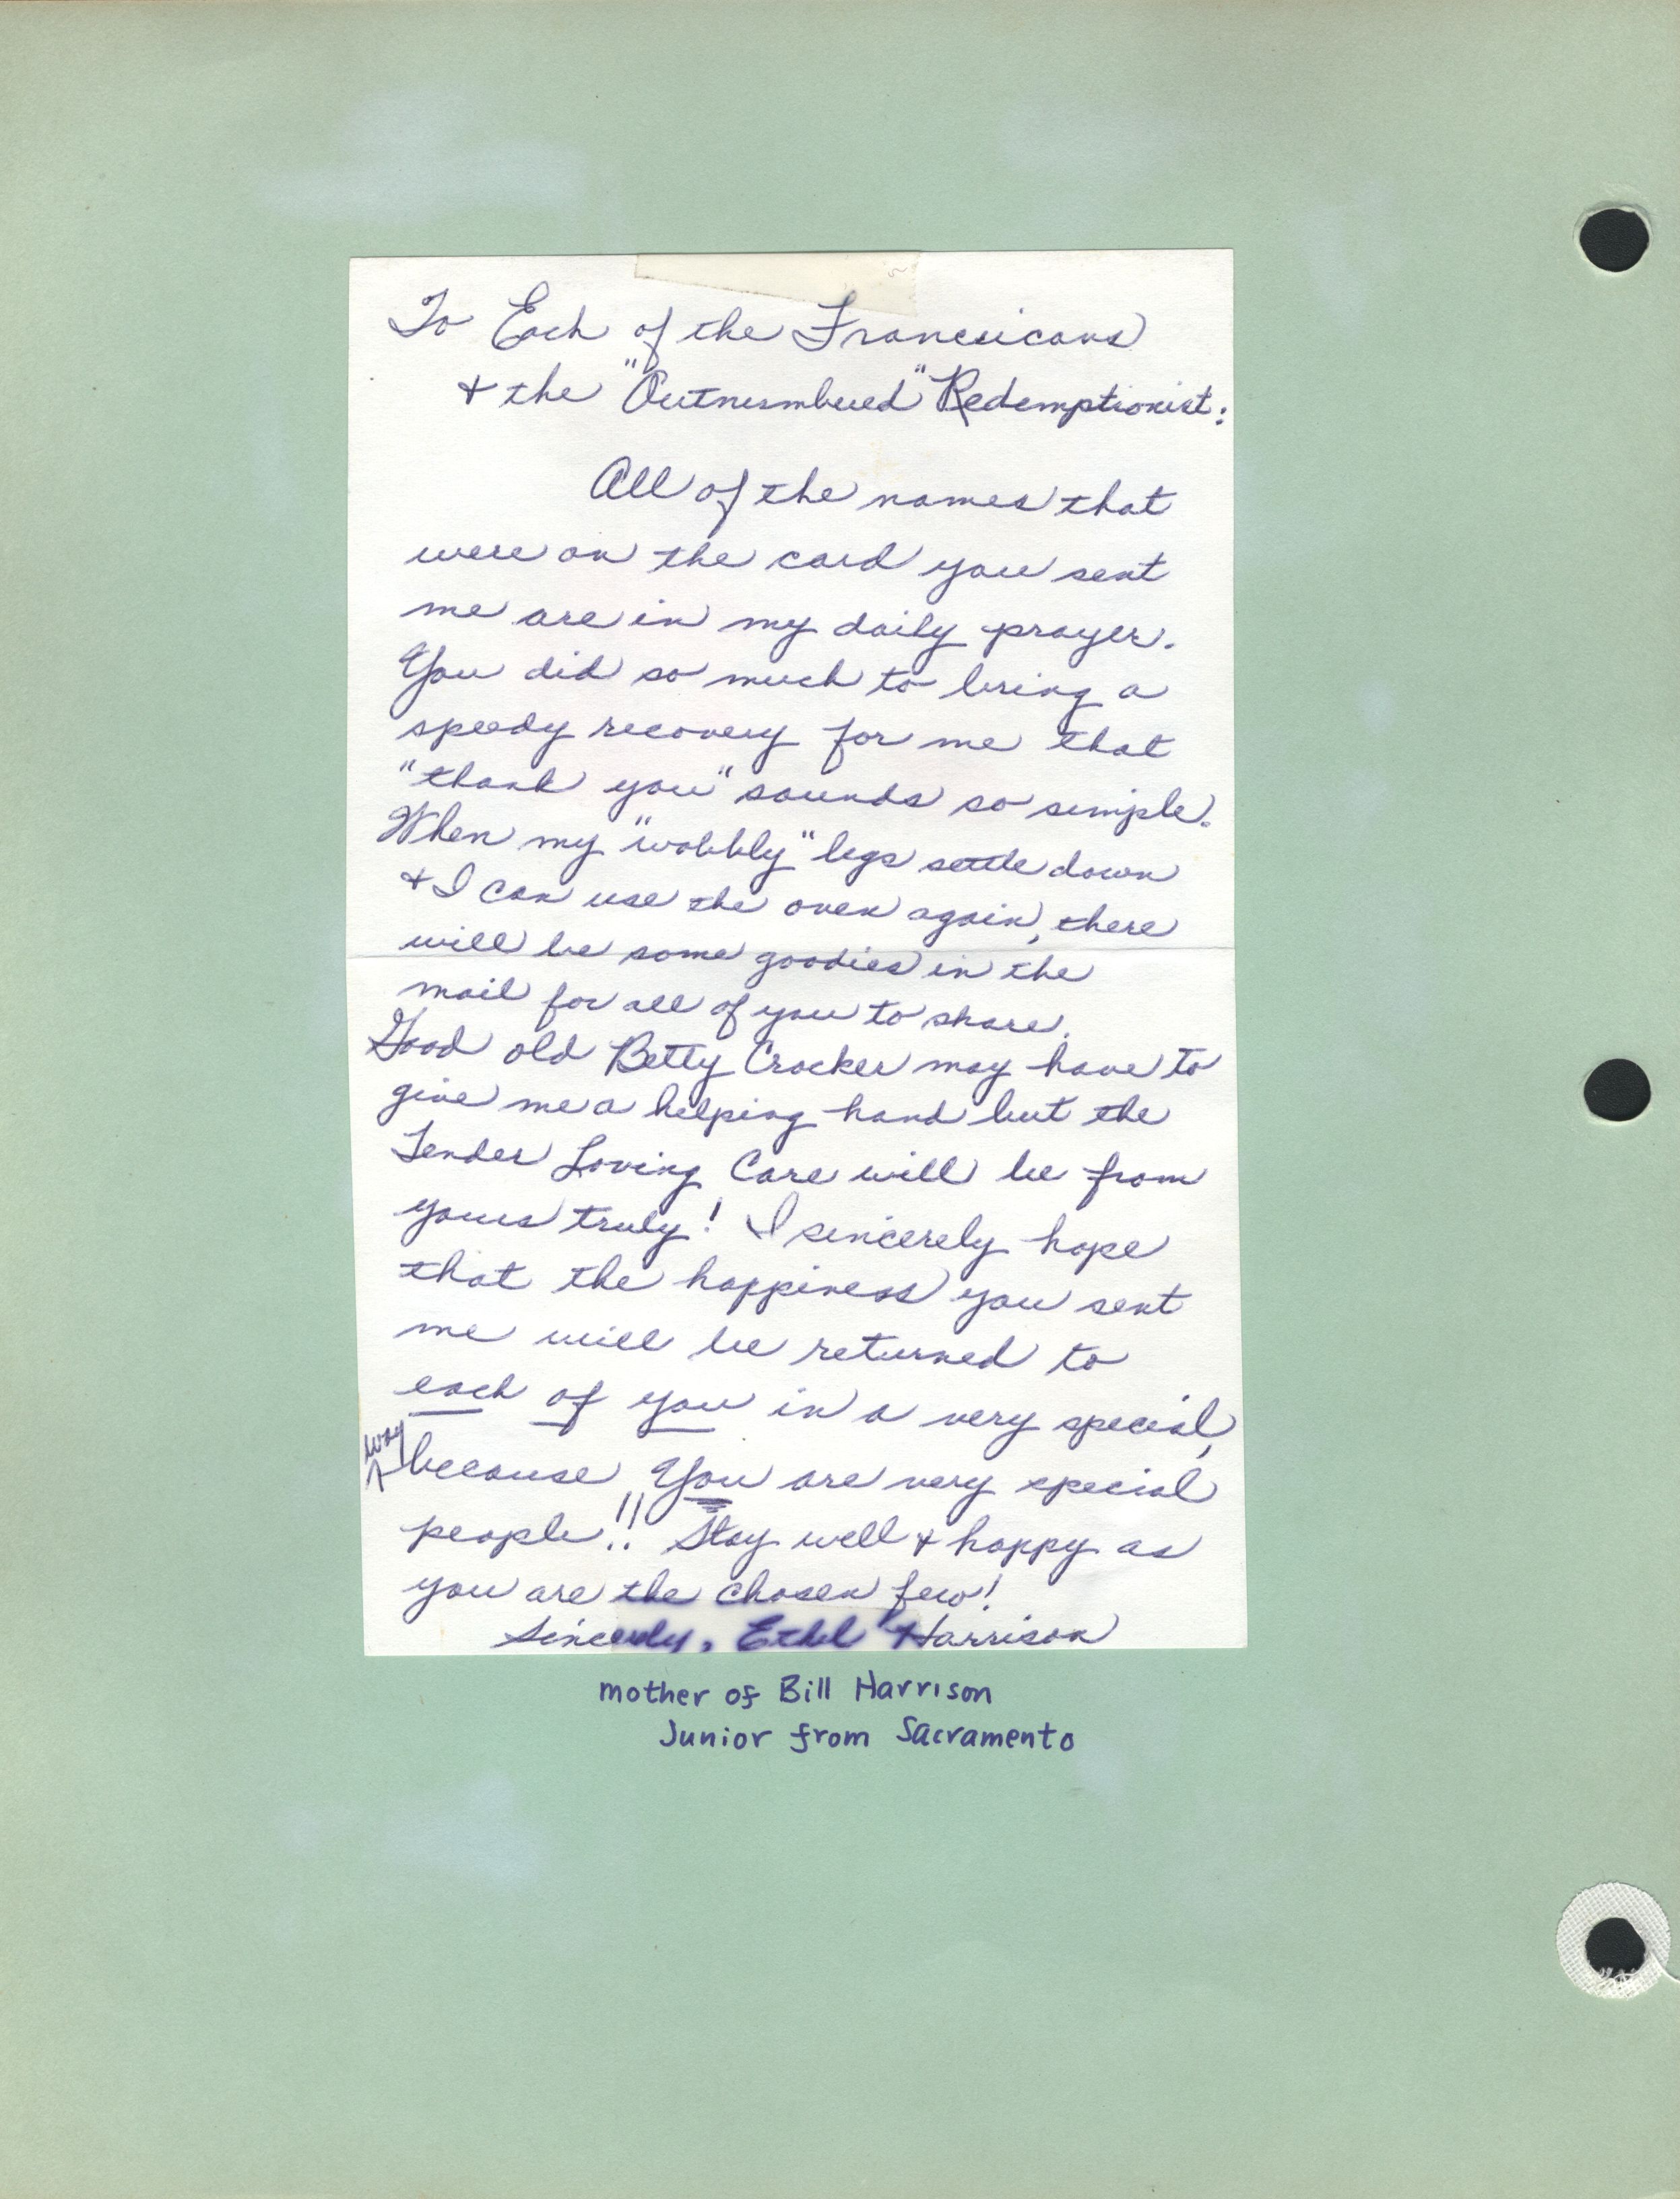 To Each of the Francsicans
& the "Outnumbered" Redemptionist:
All of the names that
were on the card you sent
me are in my daily prayer.
You did so much to bring a
speedy recovery for me that
"thank you" sounds so simple.
When my "wobbly" legs settle down
& I can use the oven again, there
will be some goodies in the
mail for all of you to share.
Good old Betty Crocker may have to
give me a helping hand but the
Tender Loving Care will be from
yours truly! I sincerely hope
that the happiness you sent
me will be returned to
each of you in a very special,
way because You are very special
people!! Stay well & happy as
you are the chosen few!
Sincerely, Ethel Harrison
mother of Bill Harrison
Junior from Sacramento